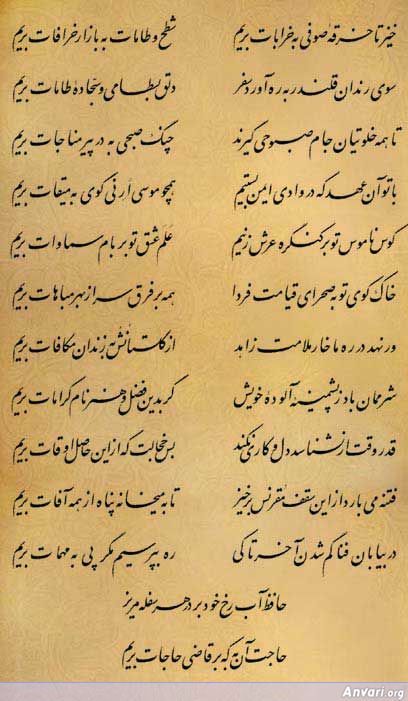 خیز تا خرقهٔ صوفی به خرابات بریم شطح و طامات به بازار خرافات بریم
سوی رندان قلندر به ره آورد سفر دلق بسطامی و سجادهٔ طامات بریم
تا همه خلوتیان جام صبوحی گیرند چنگ صبحی به در پیر مناجات بریم
با تو آن عهد که در وادی ایمن بستیم همچو موسی ارنی گوی به میقات بریم
کوس ناموس تو بر کنگرهٔ عرش زنیم علم عشق تو بر بام سماوات بریم
خاک کوی تو به صحرای قیامت فردا همه بر فرق سر از بهر مباهات بریم
ور نهد در ره ما خار ملامت زاهد از گلستانش به زندان مکافات بریم
شرممان باد ز پشمینهٔ آلودهٔ خویش گر بدین فضل و هنر نام کرامات بریم
قدر وقت ار نشناسد دل و کاری نکند بس خجالت که از این حاصل اوقات بریم
فتنه می بارد از این سقف مقرنس برخیز تا به میخانه پناه از همه آفات بریم
در بیابان فنا گم شدن آخر تا کی ره بپرسیم مگر پی به مهمات بریم
حافظ آب رخ خود بر در هر سفله مریز
حاجت آن به که بر قاضی حاجات بریم
Anvari.org